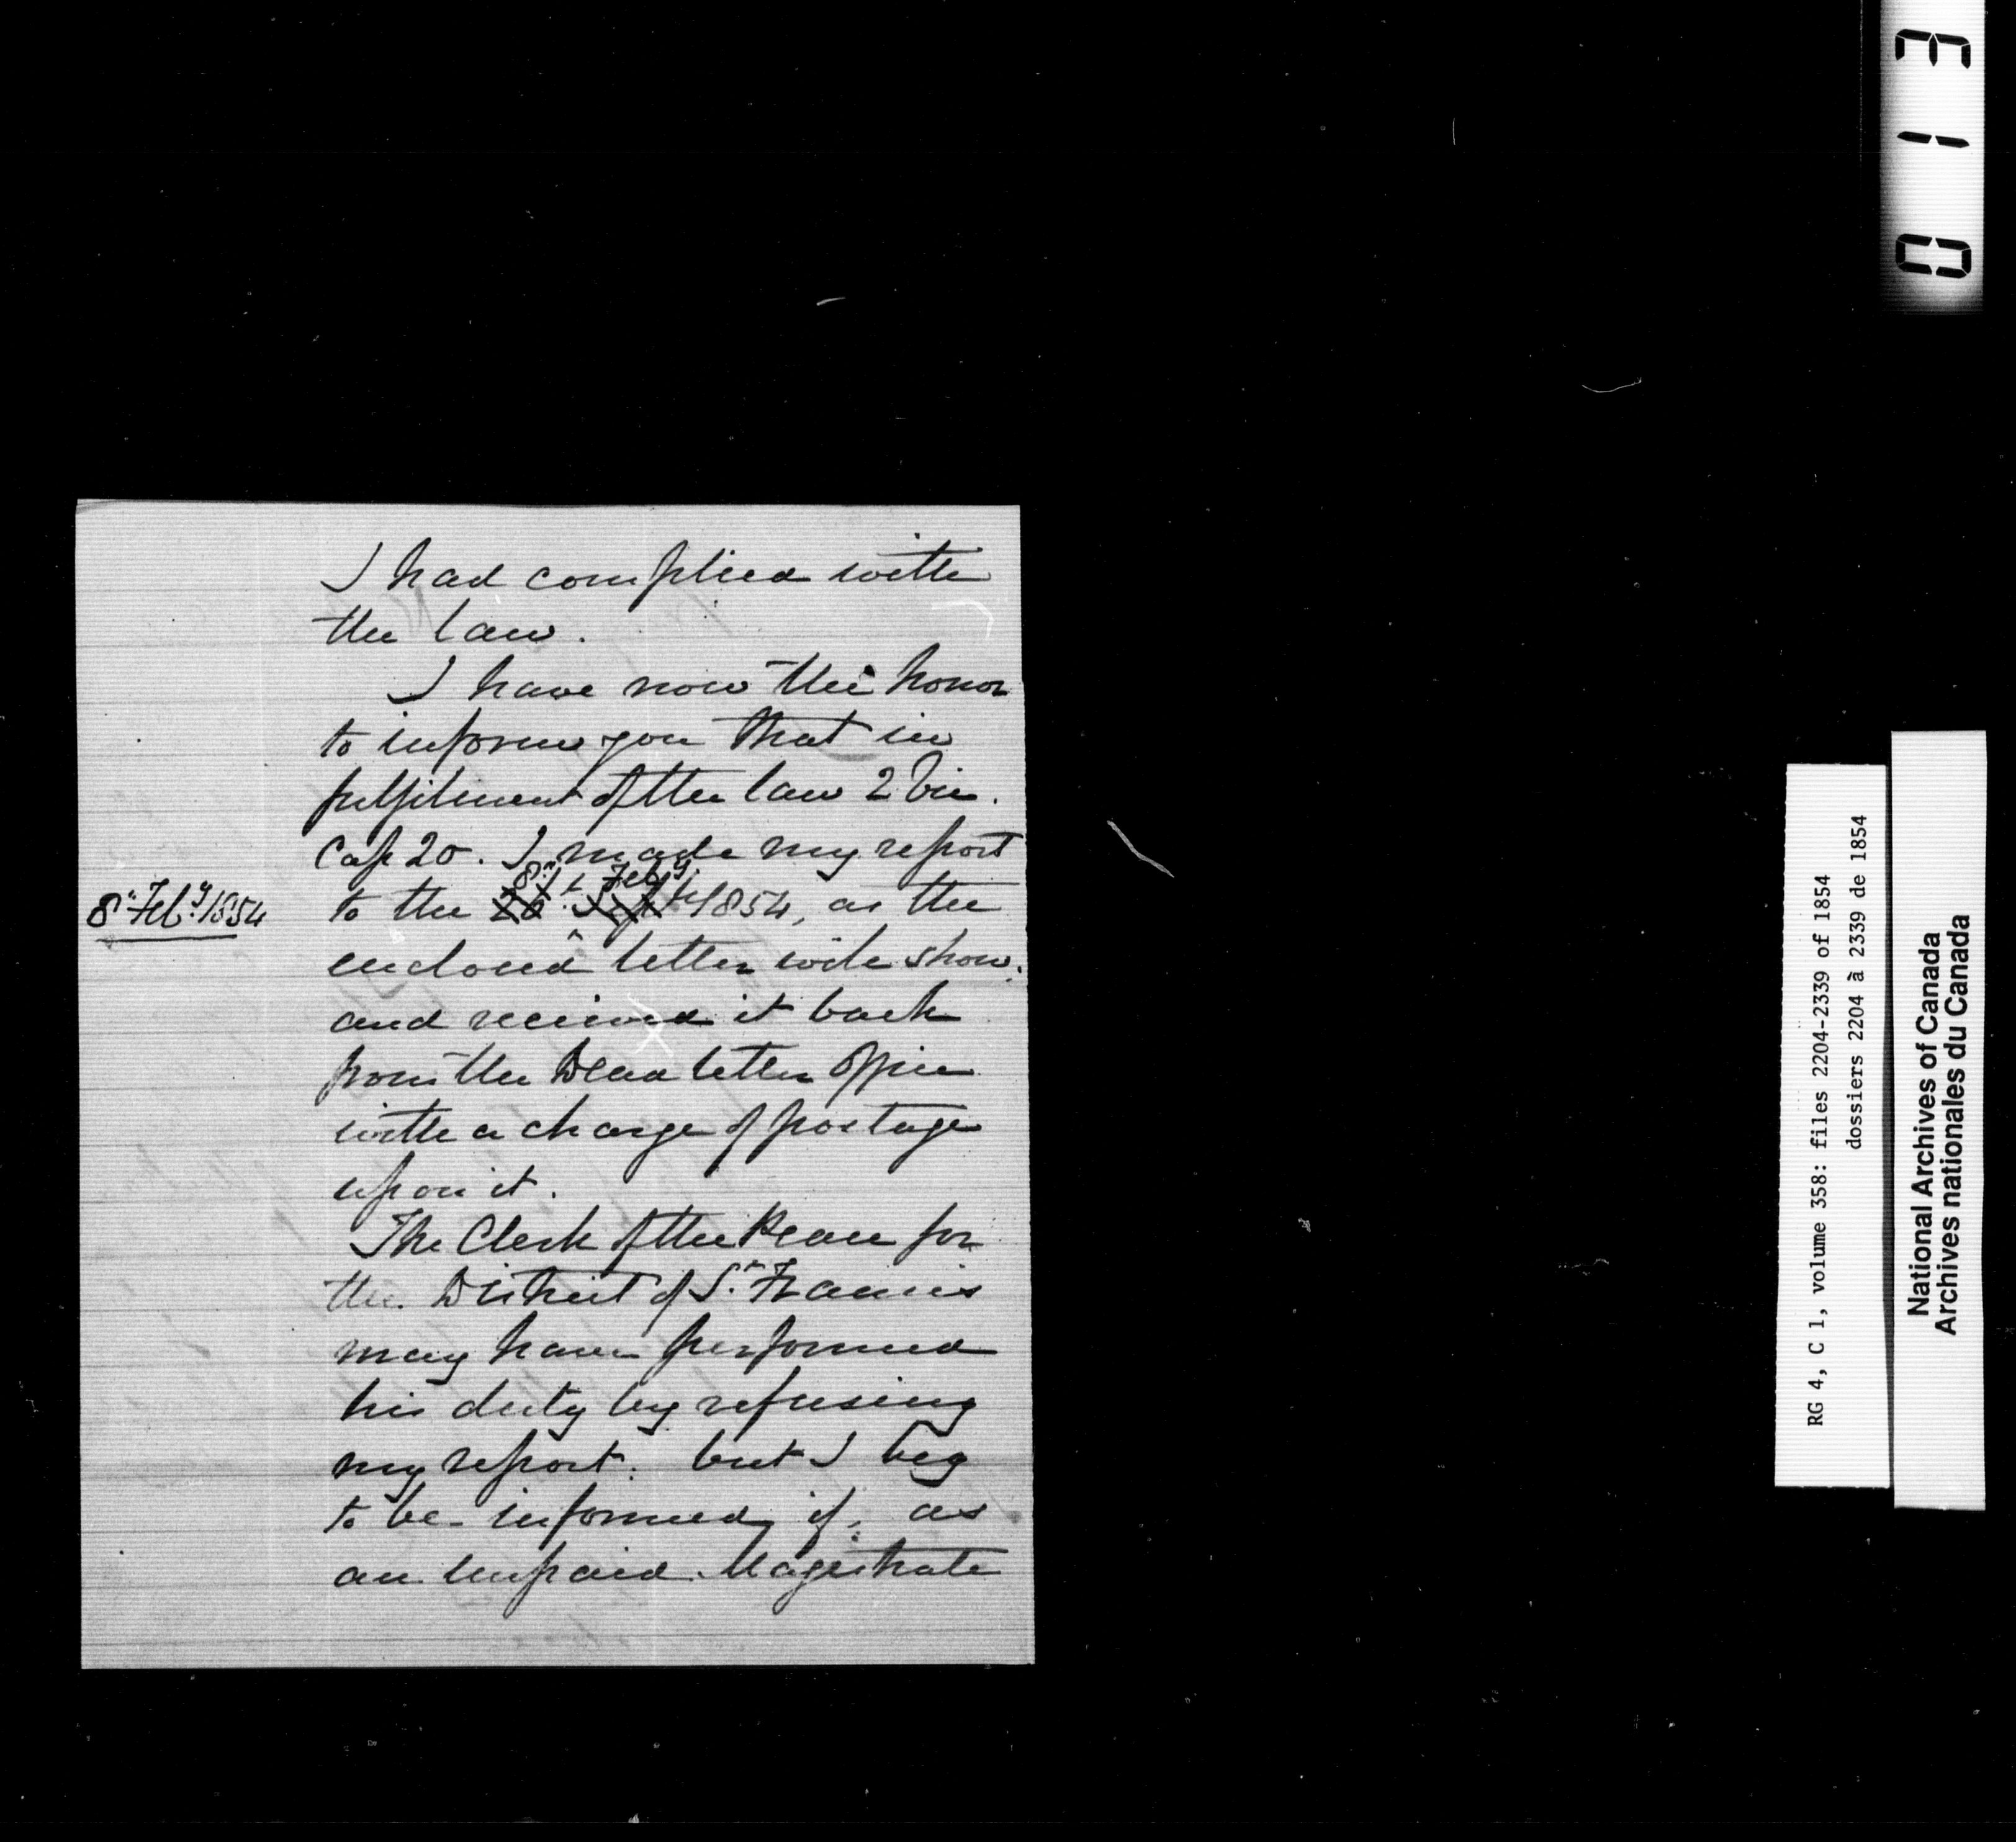 I had complied with
the law.
I have now the honor
to inform you that in
fulfilment of the law 2 Vic.
Cap 20. I made my report
8th Feby
to the 20th Sept 1854, as the
8th Feby 1854
enclosed letter will show.
and received it back
from the Dead letter Office
with a charge of postage
upon it.
The Clerk of the Peace for
the District of St. Francis
may have performed
his duty by refusing
my report: but I beg
to be informed if, as
an unpaid Magistrate
013
RG 4, C 1, volume 358: files 2204-2339 of 1854
dossiers 2204 à 2339 de 1854
National Archives of Canada
Archives nationales du Canada